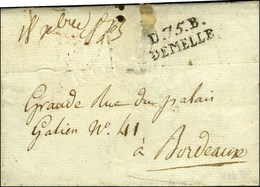 D.75.B.
DEMELLE
Grande Rue du palais
Galien N.º 41
à Bordeaux